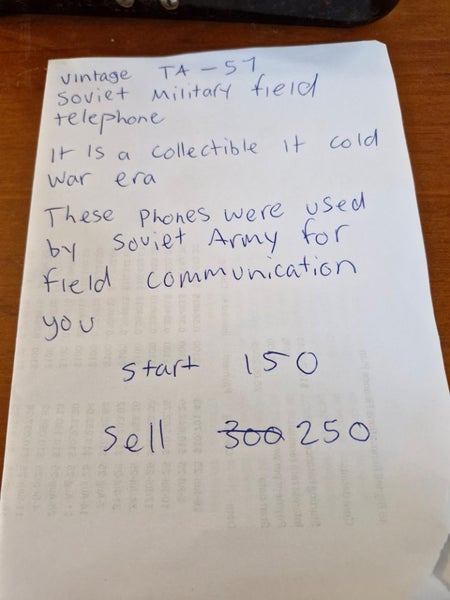 vintage TA-57
Soviet Military field
telephone
It Is a collectible It cold
war era
These Phones were used
by Soviet Army for
field communication
you
start 150
Sell 300 250